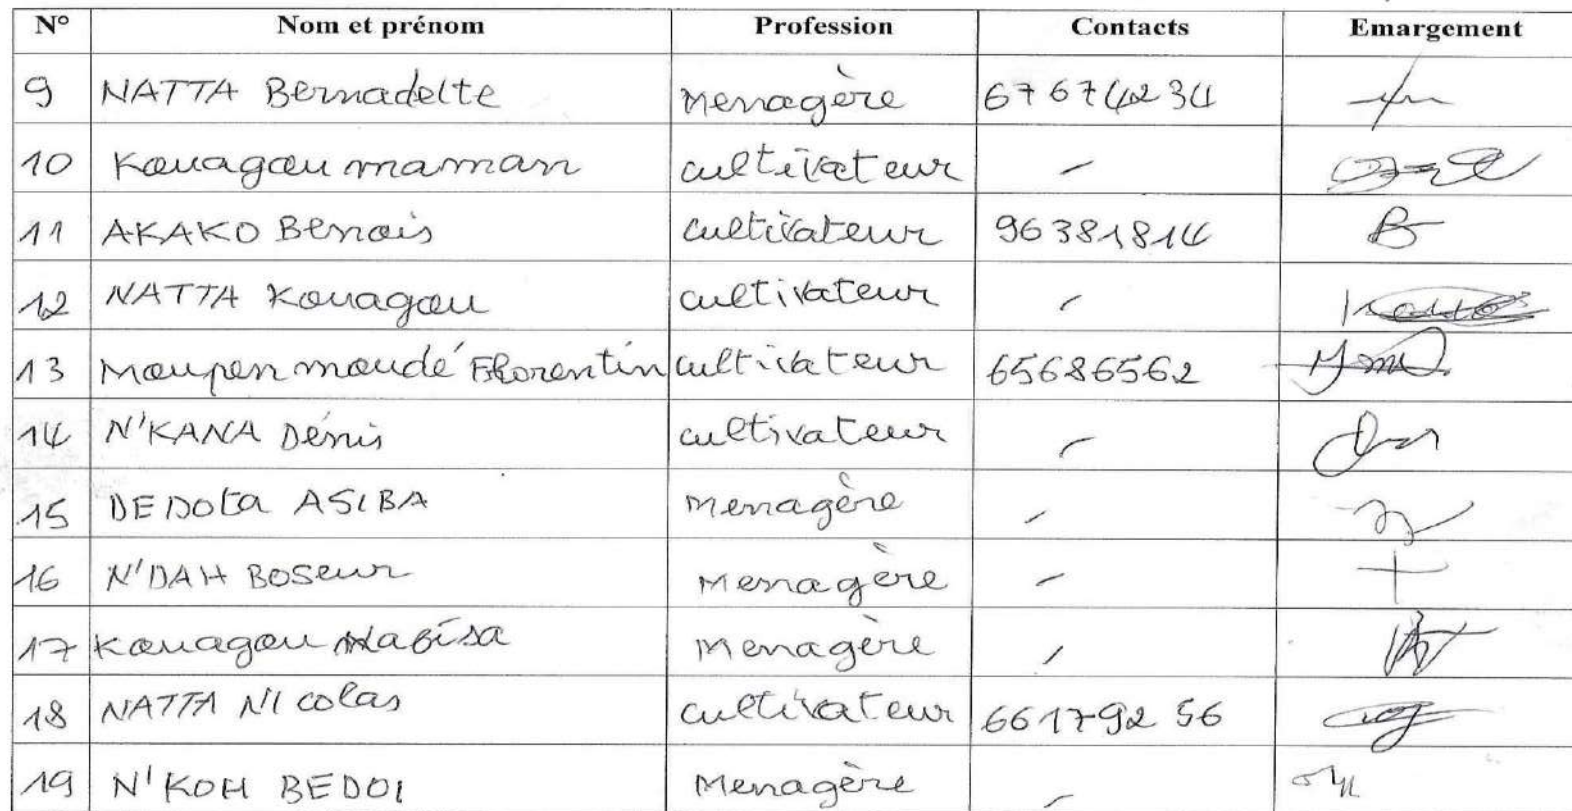 N° Nom et prénom Profession Contacts Emargement
9 NATTA Bernadette Menagère 67674234
10 Kouagou maman cultivateur -
11 AKAKO Benois cultivateur 96381814
12 NATTA Kouagou cultivateur -
13 Moupen moudé Florentin cultivateur 65686562
14 N'KANA Dénis cultivateur -
15 DEDOta ASIBA Menagère -
16 N'DAH BOSeur Menagère - +
17 Kouagou Menagère -
18 NATTA NIcolas cultivateur 66179256
19 N'KOH BEDOI Menagère -